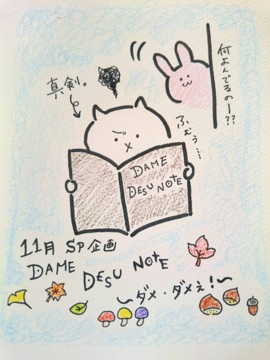 何よんでるのー??
真剣。
ふむぅ…
DAME
DESU NOTE
11月 SP企画
DAME
DESU NOTE
〜ダメ・ダメぇ!〜